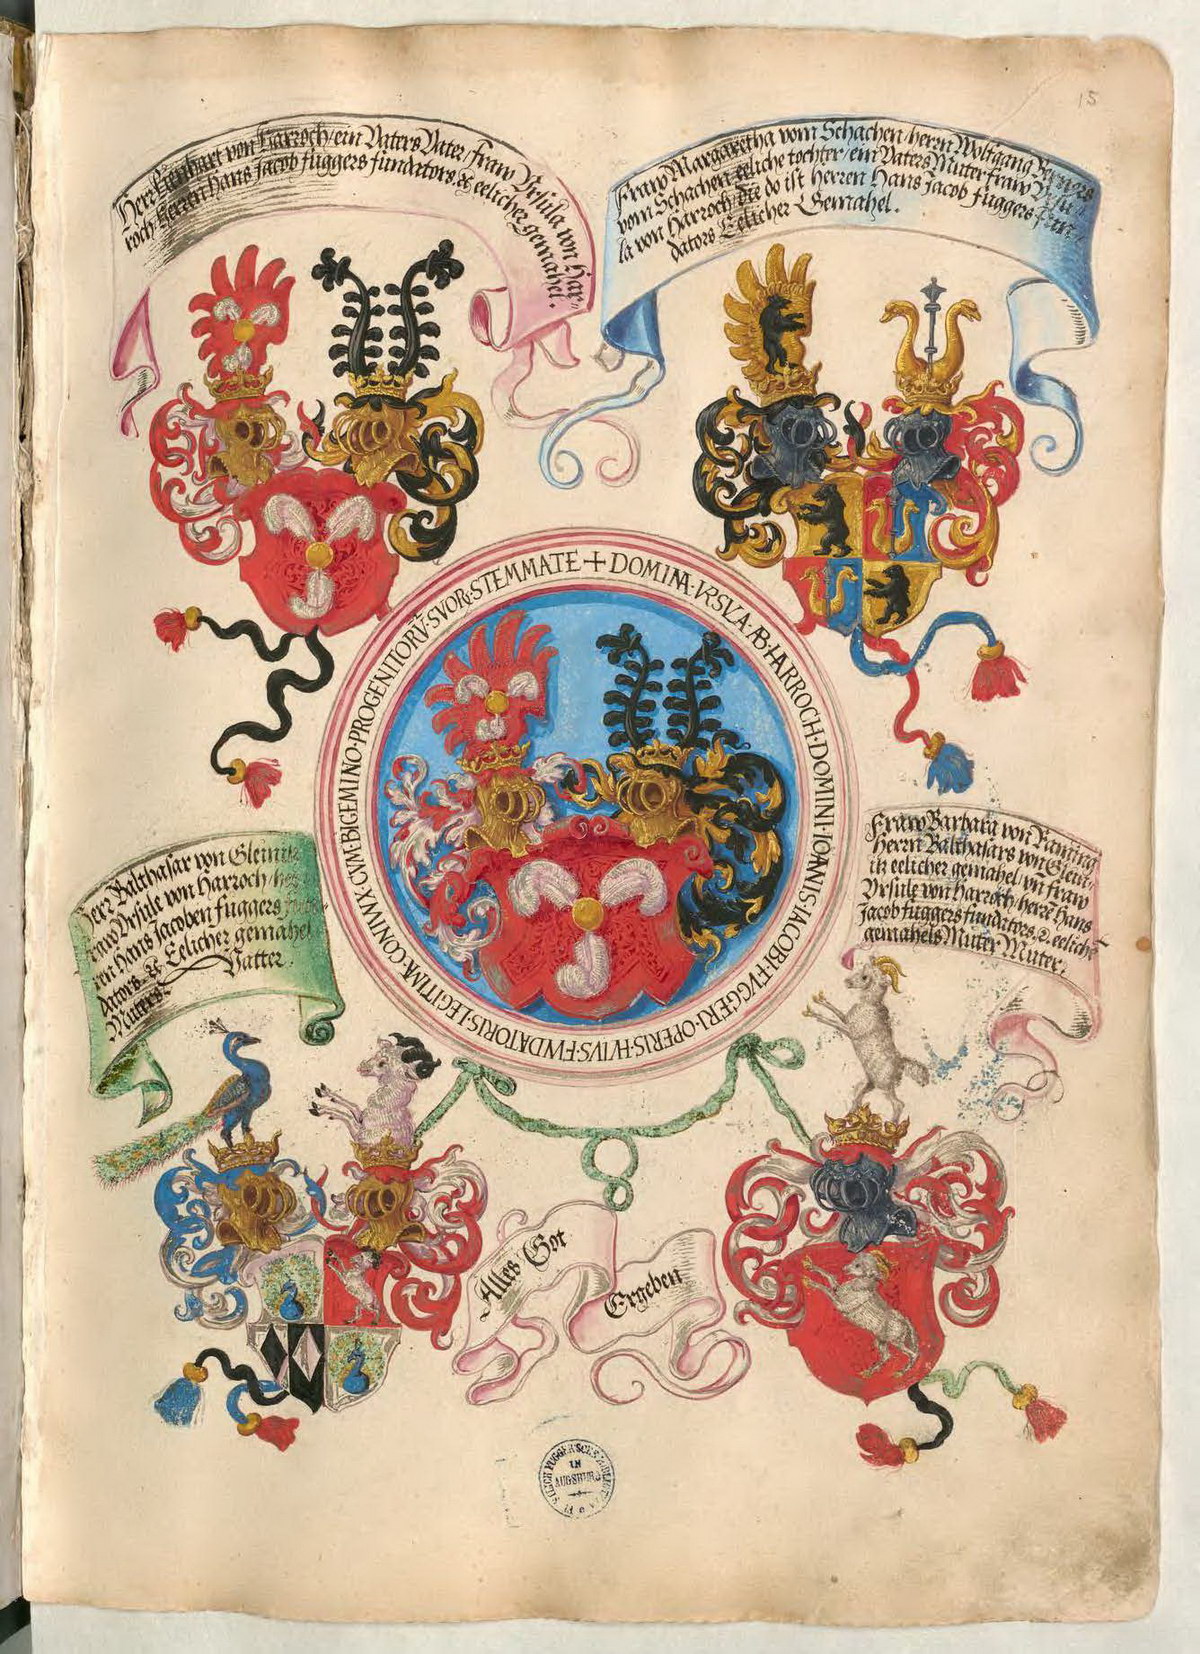 15
Herr Lienhart von Harroch / ein Vaters Vater / Fraw Vrsula von Har-
roch Herren Hans Jacob fuggers fundators &c eelicher gemahel.
Fraw Margaretha vom Schachen / herrn Wolfgang
vom Schachen eeliche tochter / ein Vaters Muter fraw Vrsu-
la von Harroch / die do ist Herren Hans Jacob fuggers fun-
dators Eelicher Gemahel.
DOMINA·VRSVLA·AB·HARROCH·DOMINI·IOANIS·IACOBI·FVGGERI·OPERIS·HVIVS·FVNDATORIS·LEGITIMA·CONIVNX·CVM·BIGEMINO·PROGENITORṼ·SVOR·STEMMATE +
Herr Balthasar von Gleinitz
fraw Vrsule von Harroch /
ren Hans Jacoben fuggers
dators &c Eelicher gemahel
Muters Vatter.
Fraw Barbara von Raming
Herrn Balthasars von Glein-
itz eelicher gemahel / vñ fraw
Vrsule von Harroch / herr Hans
Jacob fuggers fundators &c eeliche
gemahels Muter Muter.
Alles Got
Ergeben
IN
AUGSBURG